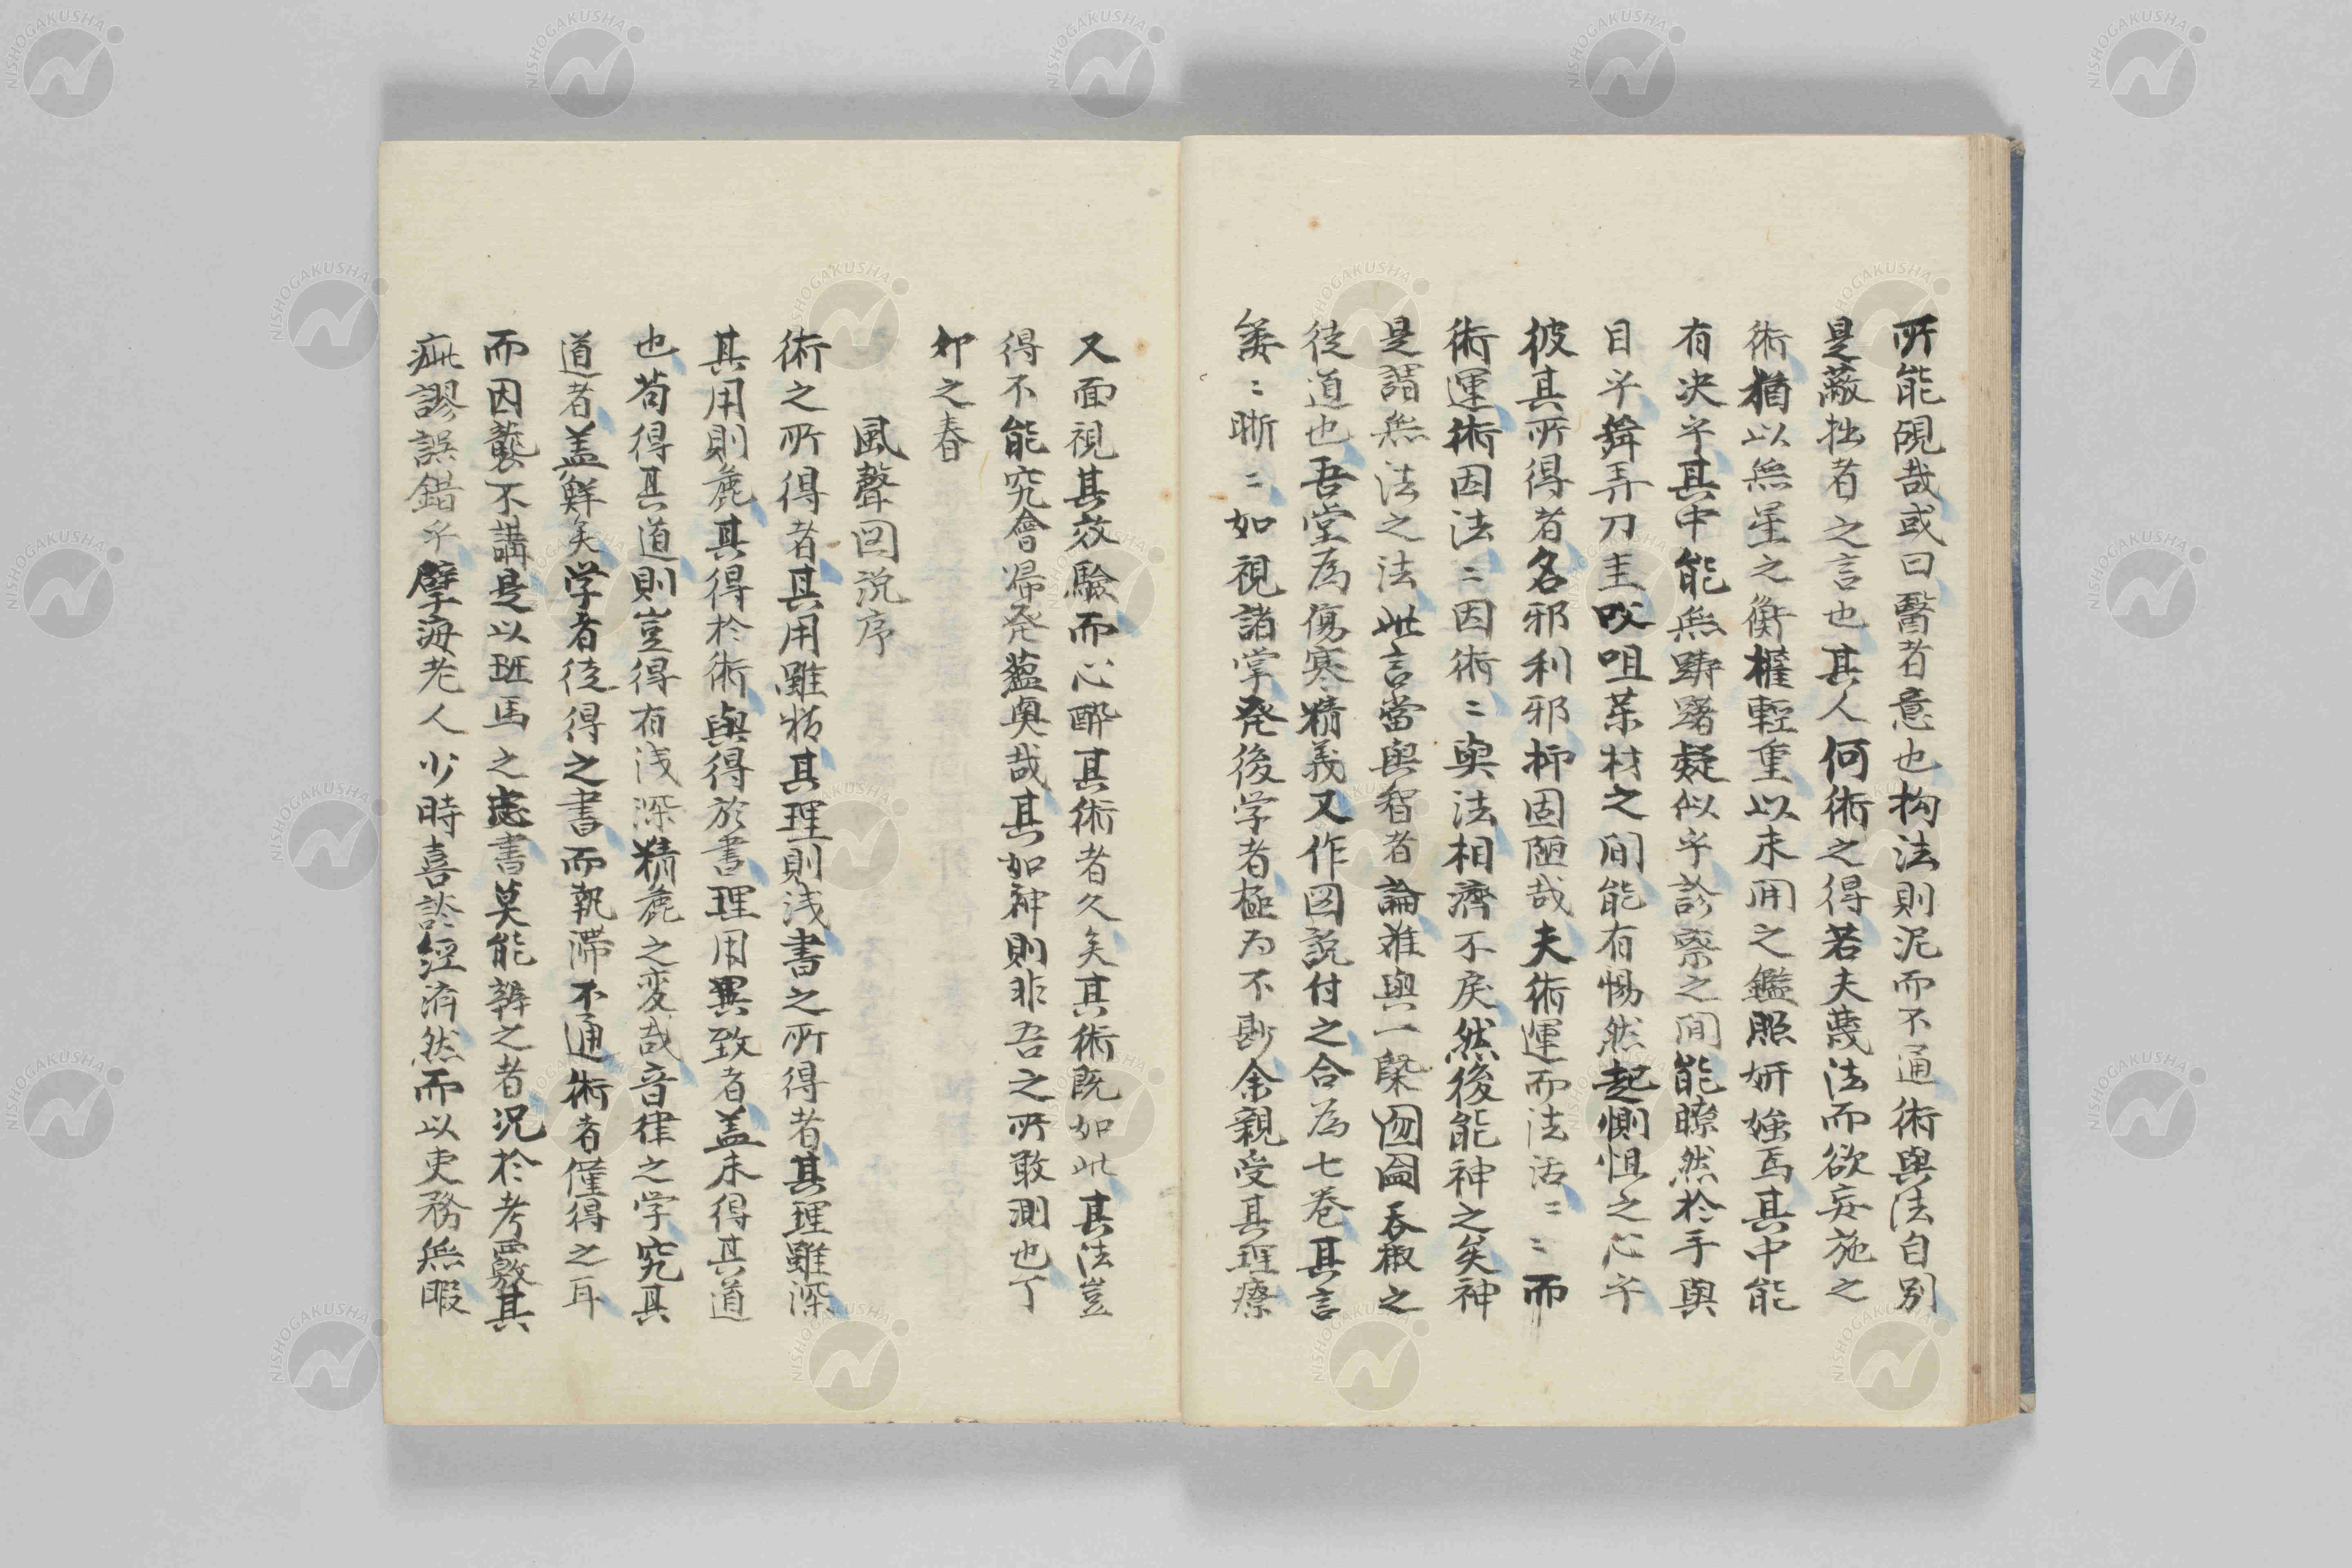 所能硯哉或曰醫者意也拘法則泥而不通術與法自別
是蔽拙者之言也其人何術之得若夫蔑法而欲妄施之
術猶以無星之衡權輕重以未開之鑑照妍媸焉其中能
有决乎其中能無躊躇疑似乎診察之間能瞭然於手與
目乎舞弄刀圭㕮咀薬材之間能有惕然起惻怛之心乎
彼其所得者名邪利邪抑固陋哉夫術運而法活〻〻而
術運術因法〻因術〻與法相濟不戾然後能神之矣神
是謂無法之法此言當與智者論難與一槩囫圇吞椒之
徒道也吾堂為傷寒精義又作図説付之合為七卷其言
〻晣〻如視諸掌発後学者極為不尠余親受其理療
又面視其效驗而心酔其術者久矣其術既如此其法豈
得不能究會帰発蘊奥哉其如神則非吾之所敢測也丁
卯之春
風聲図説序
術之所得者其用雖精其理則浅書之所得者其理雖深
其用則麁其得於術與得於書理用異致者盖未得其道
也苟得其道則豈得有浅深精麁之変哉音律之学究其
道者盖鮮矣学者徒得之書而執滞不通術者僅得之耳
而因襲不講是以班馬之志書莫能辨之者況於考覈其
疵謬誤錯乎擘海老人少時喜談経済然而以吏務無暇
NISHOGAKUSHA